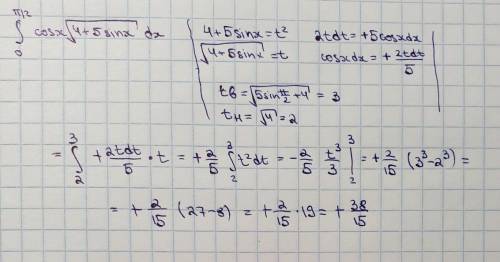 ∫₀^(π/2) cosx√(4+5sinx) dx | 4+5sinx=t² 2tdt=+5cosxdx
√(4+5sinx)=t cosxdx=+2tdt/5
tв=√(5sin π/2 +4) = 3
tн=√4=2
= ∫₂³ +2tdt/5 · t = +2/5 ∫₂³ t²dt = -2/5 t³/3 |₂³ = +2/15 (3³-2³) =
= +2/15 (27-8) = +2/15 · 19 = +38/15